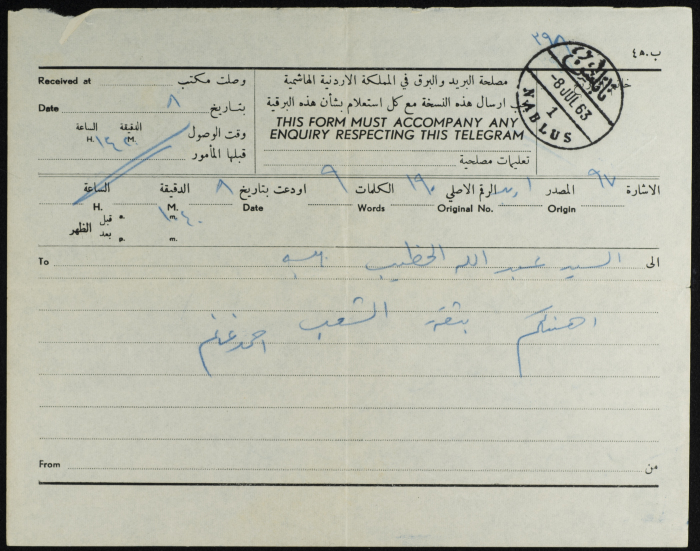 ب. ٤٥
٢٩٨
مصلحة البريد والبرق في المملكة الاردنية الهاشمية
ب ارسال هذه النسخة مع كل استعلام بشأن هذه البرقية
THIS FORM MUST ACCOMPANY ANY
ENQUIRY RESPECTING THIS TELEGRAM
تعليمات مصلحية
-8 JUL 63
1
NABLUS
Received at وصلت مكتب
Date ٨ بتاريخ
الساعة الدقيقة وقت الوصول
H. M.
قبلها المأمور
الاشارة ٩٧ المصدر اربد الرقم الاصلي ١٩٠ الكلمات ٩ اودعت بتاريخ ٨ الدقيقة الساعة
Origin Original No. Words Date M. H.
١٠٤٠
قبل a. m.
الظهر
بعد p. m.
To الى
السيد عبد الله الخطيب
اهنئكم بثقة الشعب احمد غانم
From من